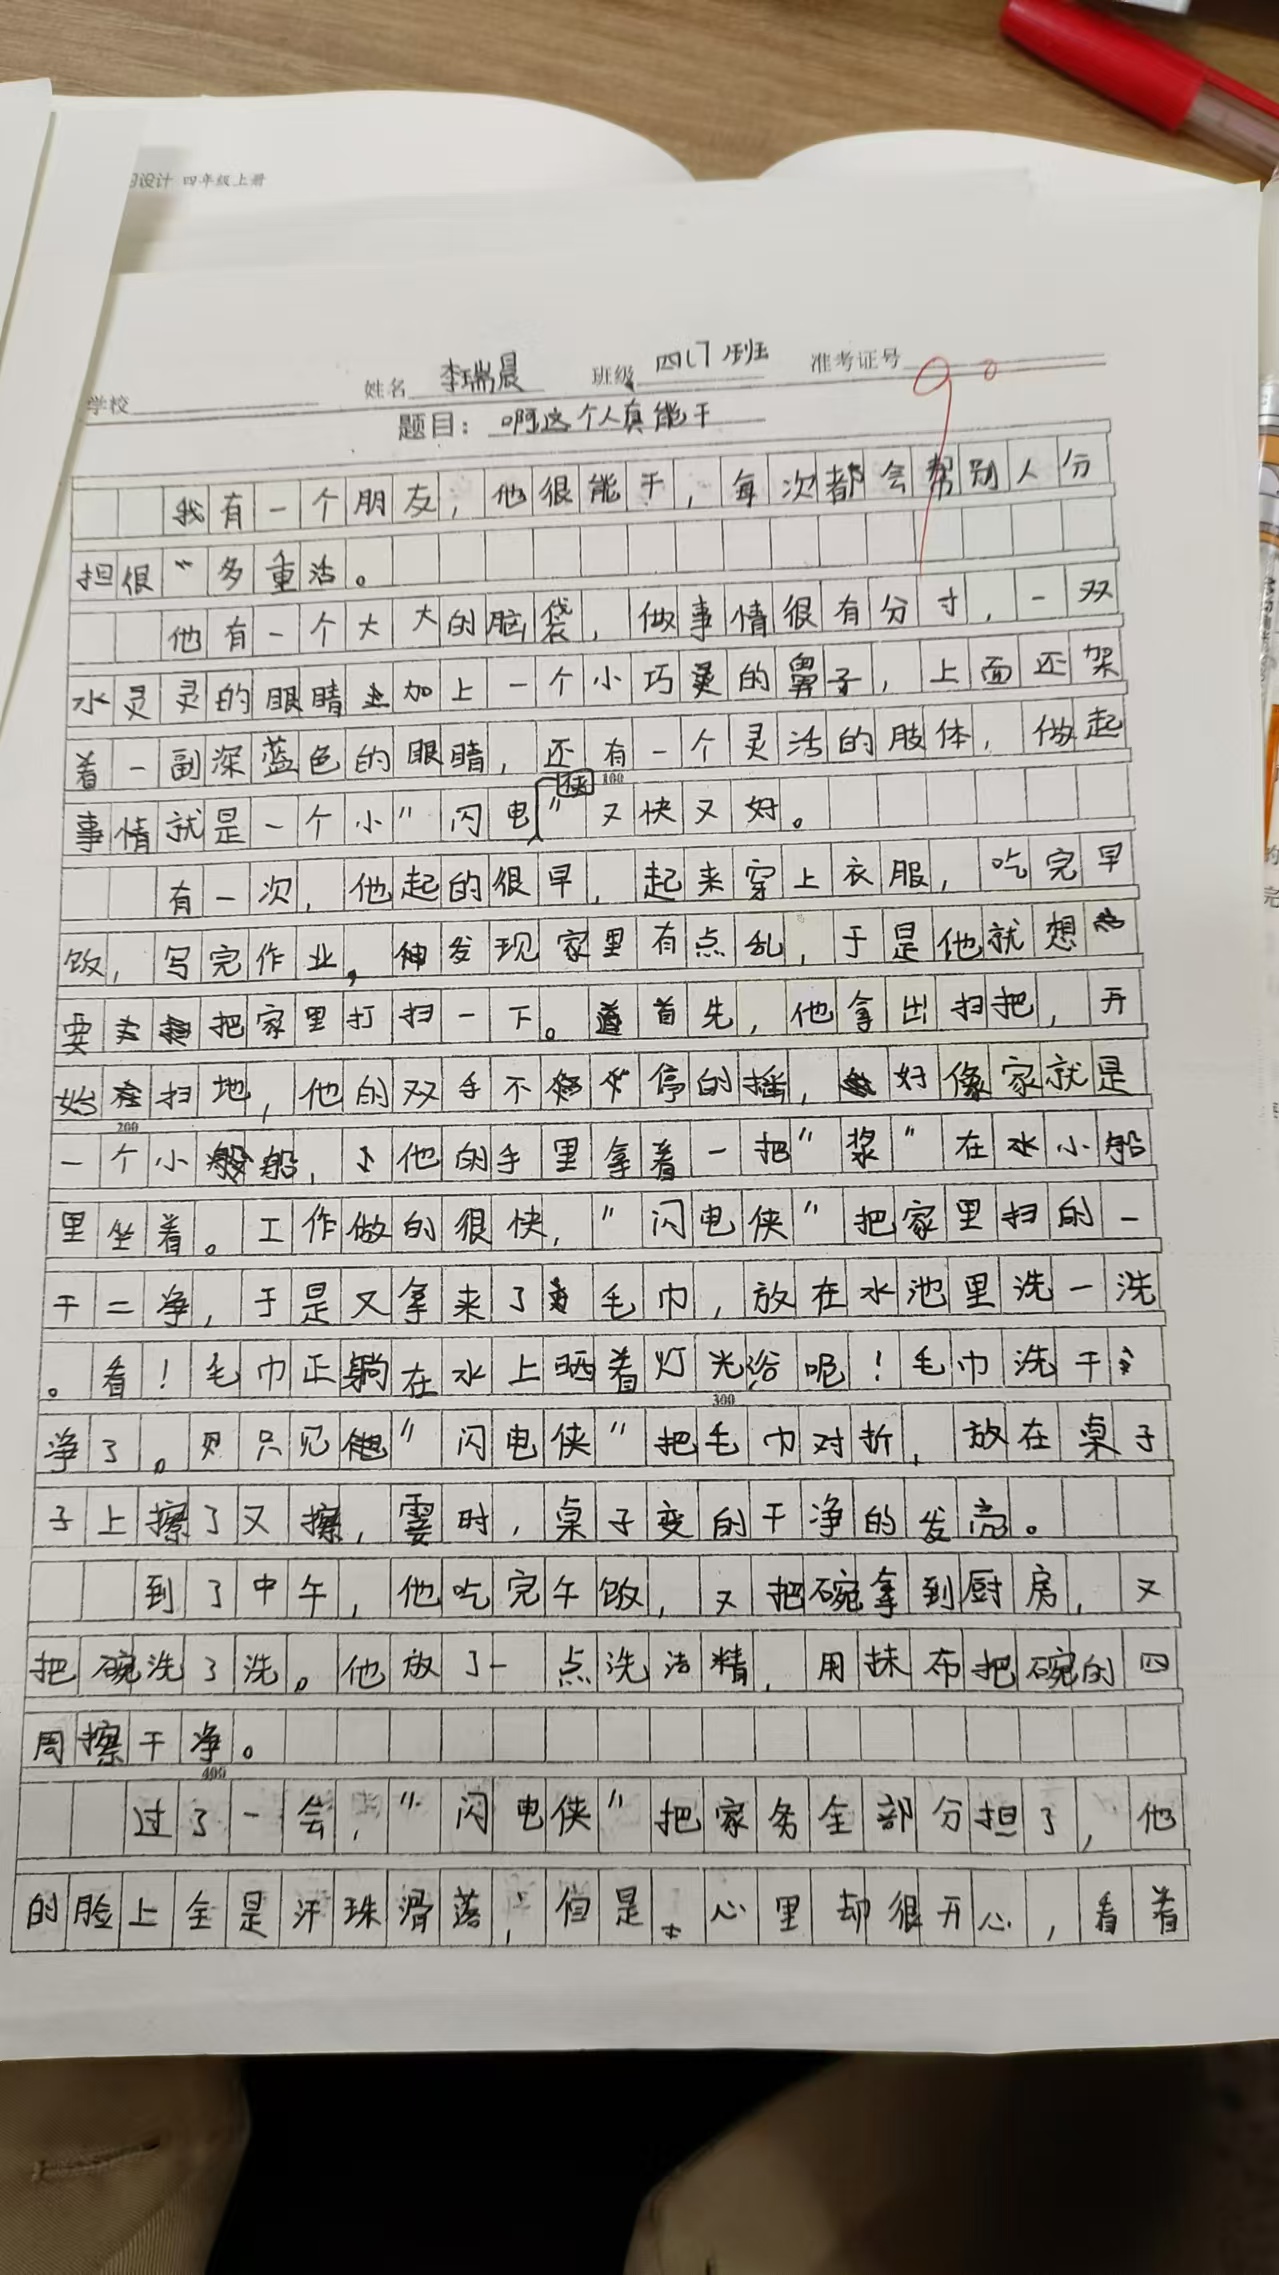 习设计 四年级上册
学校 姓名 李瑞晨 班级 四(7)班 准考证号 90
题目：啊这个人真能干
我有一个朋友，他很能干，每次都会帮别人分
担很多重活。
他有一个大大的脑袋，做事情很有分寸，一双
水灵灵的眼睛加上一个小巧灵的鼻子，上面还架
着一副深蓝色的眼睛，还有一个灵活的肢体，做起
100
事情就是一个小"闪电侠"又快又好。
有一次，他起的很早，起来穿上衣服，吃完早
饭，写完作业，他发现家里有点乱，于是他就想
要把家里打扫一下。首先，他拿出扫把，开
始扫地，他的双手不停的摇，好像家就是
200
一个小船，他的手里拿着一把"浆"在水小船
里坐着。工作做的很快，"闪电侠"把家里扫的一
干二净，于是又拿来了毛巾，放在水池里洗一洗
。看！毛巾正躺在水上晒着灯光浴呢！毛巾洗干
300
净了。只见"闪电侠"把毛巾对折，放在桌子
子上擦了又擦，霎时，桌子变的干净的发亮。
到了中午，他吃完午饭，又把碗拿到厨房，又
把碗洗了洗。他放了一点洗洁精，用抹布把碗的四
周擦干净。
400
过了一会，"闪电侠"把家务全部分担了，他
的脸上全是汗珠滑落，但是心里却很开心，看着